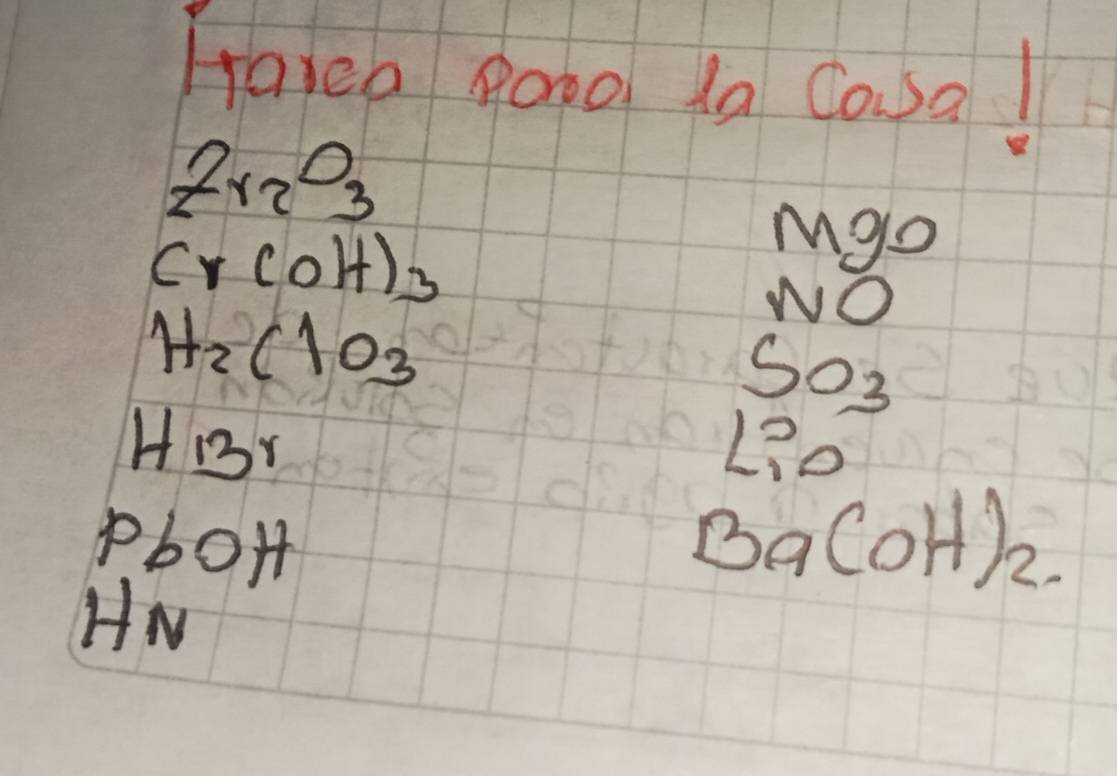 Tarea para la Casa!
Zr2O3
Cr(OH)3
H2ClO3
HBr
PbOH
HN
MgO
NO
SO3
LiO
Ba(OH)2.